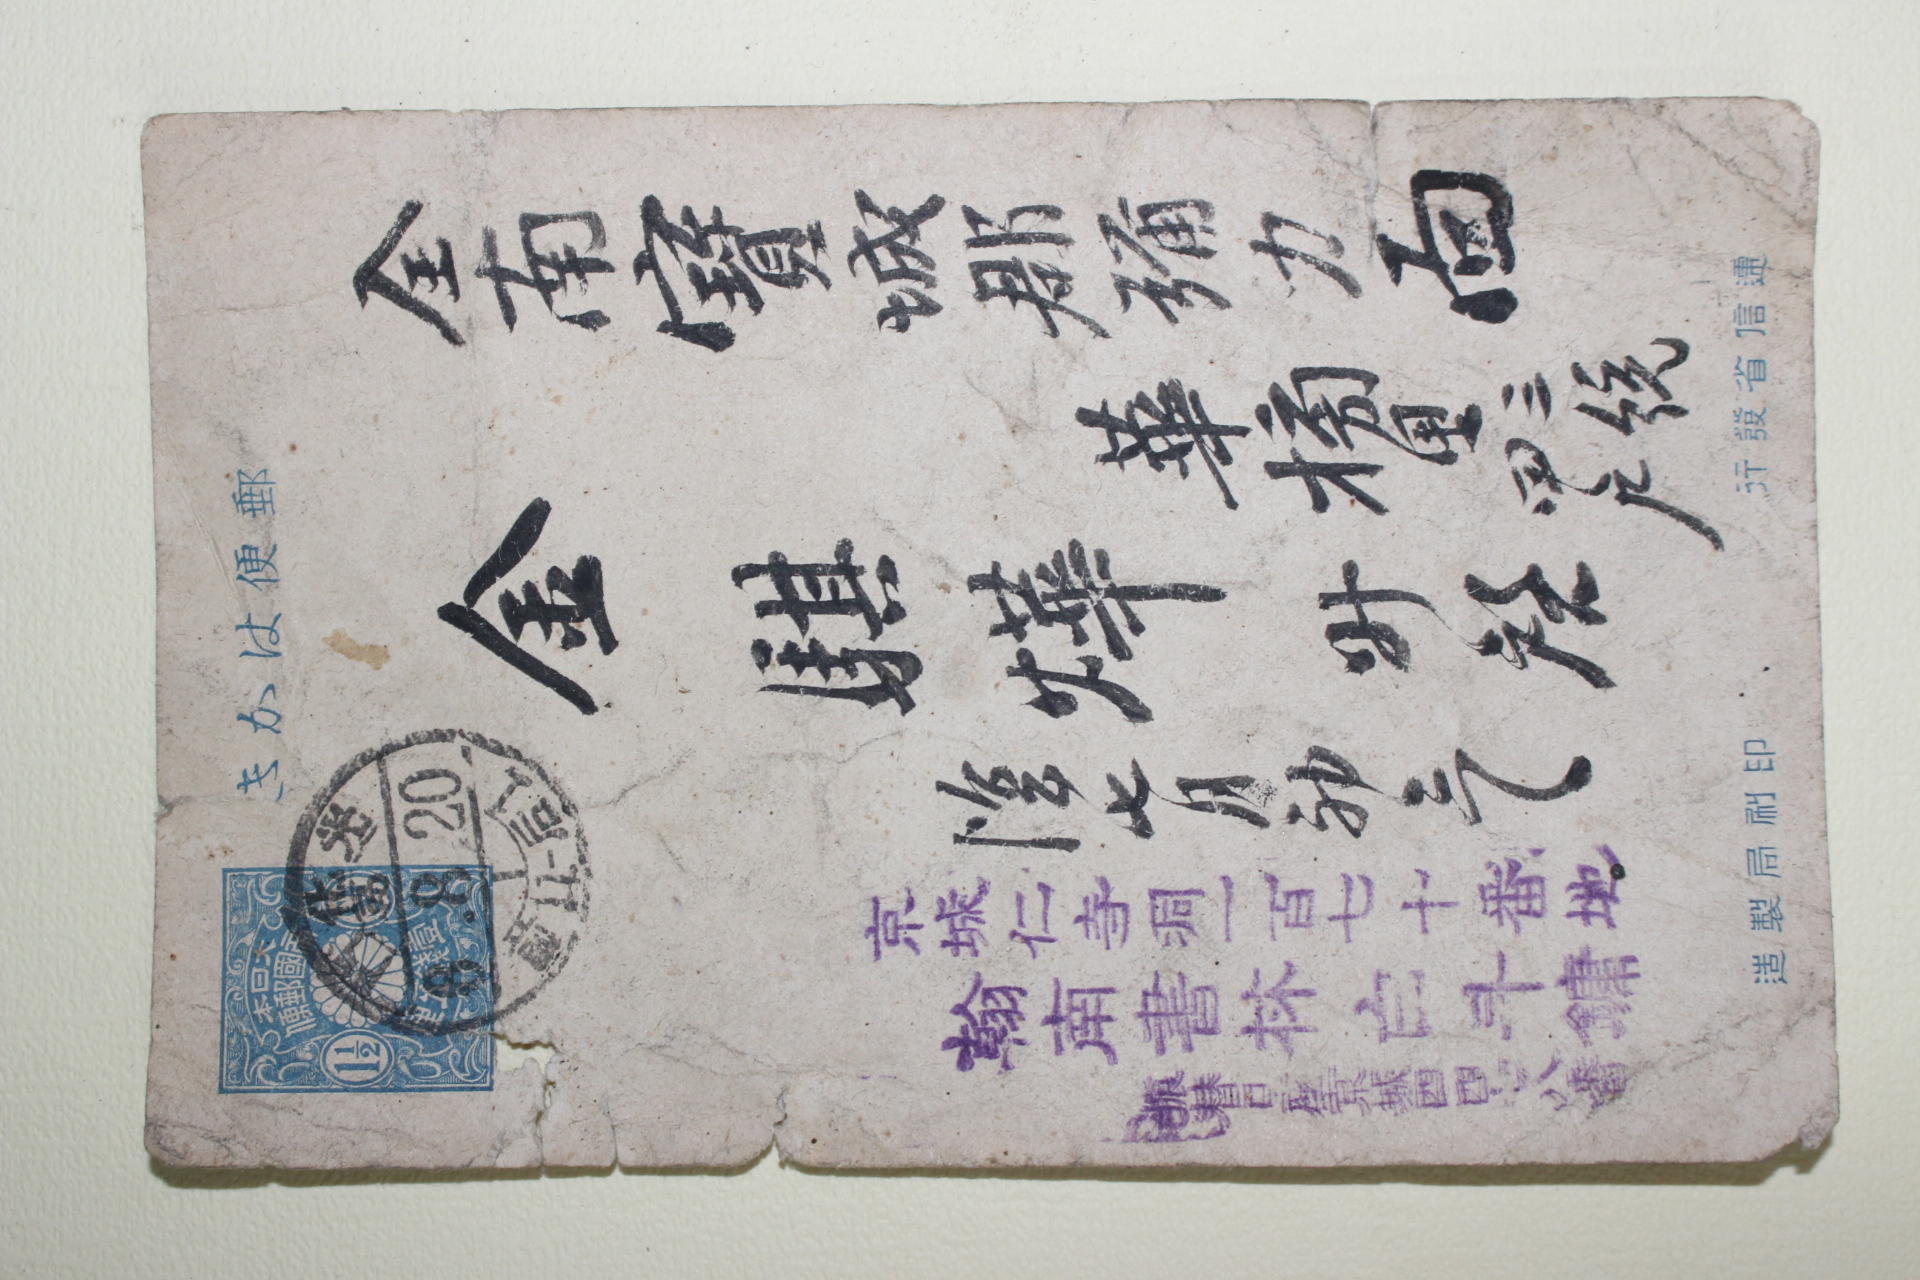 郵便はかき
大日本
帝國郵便
1½
壹錢五厘
光化
門
8.8.20
全南寶城郡彌力面
華橋里三統
四戶
金騏燁 升啓
陰七月初三
京城仁寺洞一百七十番地
翰南書林 白斗鏞
振替口座京城四四八番
遞信省發行
印刷局製造